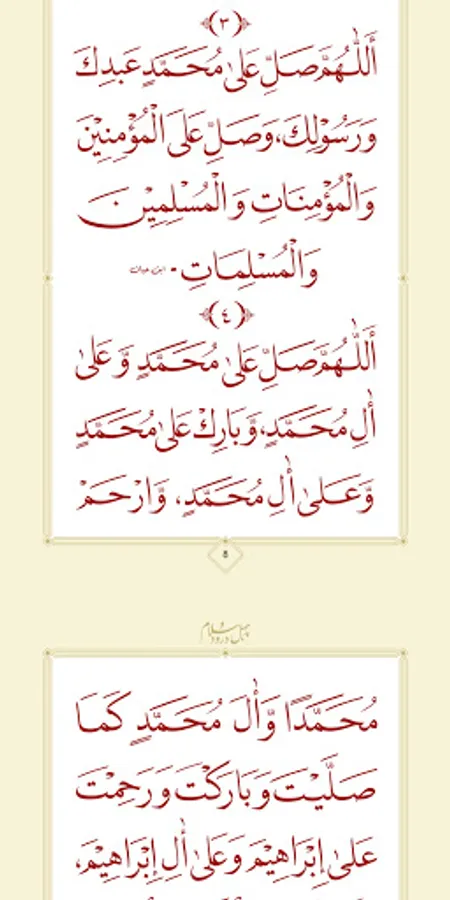 (٣)
أَللّٰهُمَّ صَلِّ عَلىٰ مُحَمَّدٍ عَبدِكَ
وَرَسُوْلِكَ، وَصَلِّ عَلَى الْمُؤْمِنِيْنَ
وَالْمُؤْمِنَاتِ وَالْمُسْلِمِيْنَ
وَالْمُسْلِمَاتِ.
(٤)
أَللّٰهُمَّ صَلِّ عَلىٰ مُحَمَّدٍ وَّعَلىٰ
أٰلِ مُحَمَّدٍ، وَّبَارِكْ عَلىٰ مُحَمَّدٍ
وَّعَلىٰ أٰلِ مُحَمَّدٍ، وَّارْحَمْ
٥
چہل درود و سلام
مُحَمَّدًا وَّأٰلَ مُحَمَّدٍ كَمَا
صَلَّيْتَ وَبَارَكْتَ وَرَحِمْتَ
عَلىٰ إِبْرَاهِيْمَ وَعَلىٰ أٰلِ إِبْرَاهِيْمَ،